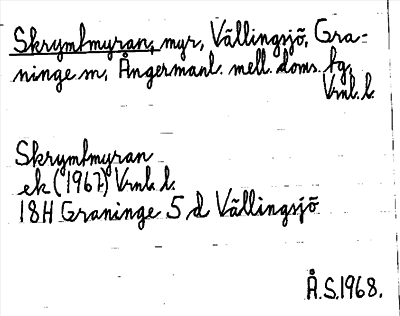 Skrymtmyran, myr, Vällingsjö, Gra-
ninge sn, Ångermanl. mell. doms. fg,
Vrnl. l.
Skrymtmyran
ek (1967) Vrnl. l.
18H Graninge 5 d Vällingsjö
Å.S.1968.